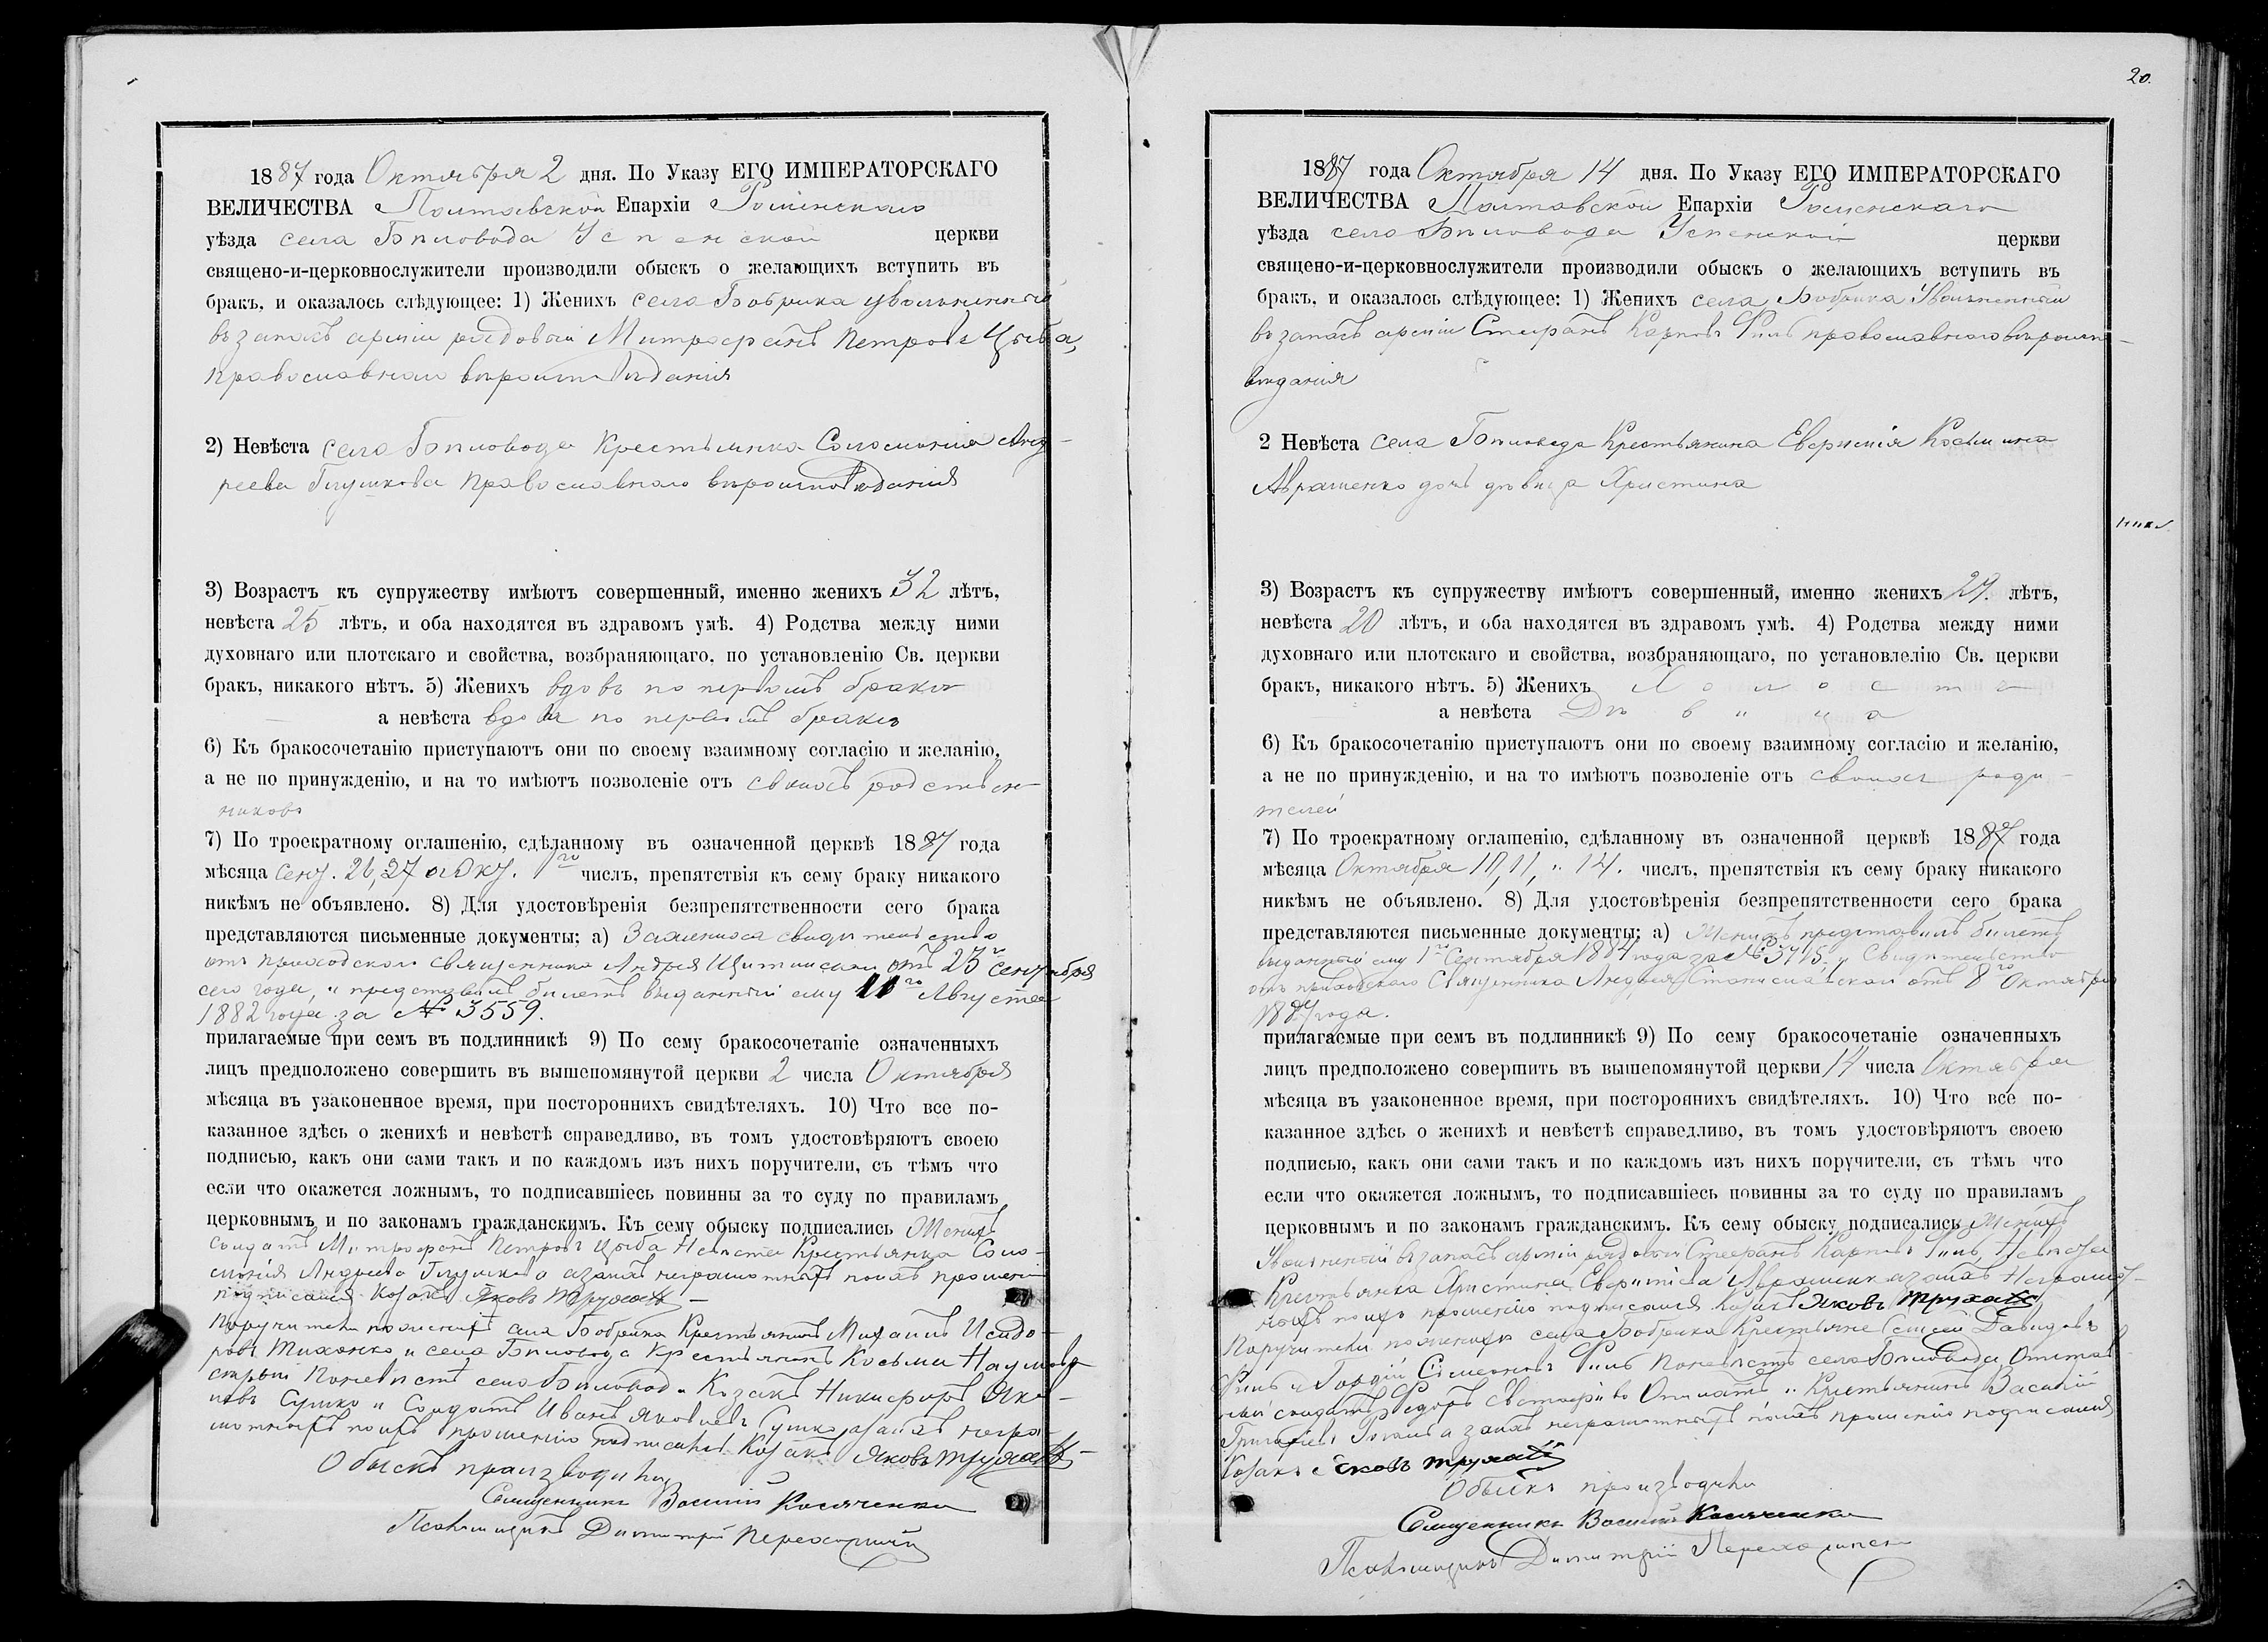 1887 года Октября 2 дня. По Указу ЕГО ИМПЕРАТОРСКАГО
ВЕЛИЧЕСТВА Полтавской Епархіи Роменскаго
уѣзда села Бѣловода Успенской церкви
священо-и-церковнослужители производили обыскъ о желающихъ вступить въ
бракъ, и оказалось слѣдующее: 1) Женихъ села Бобрика уволненный
въ запасъ арміи рядовой Митрофанъ Петровъ Цыба,
православнаго вѣроисповѣданія
2) Невѣста села Бѣловода Крестьянка Соломонія Анд-
реева Глушкова православнаго вѣроисповѣданія
3) Возрастъ къ супружеству имѣютъ совершенный, именно женихъ 32 лѣтъ,
невѣста 25 лѣтъ, и оба находятся въ здравомъ умѣ. 4) Родства между ними
духовнаго или плотскаго и свойства, возбраняющаго, по установленію Св. церкви
бракъ, никакого нѣтъ. 5) Женихъ вдовъ по первомъ бракѣ
а невѣста вдова по первомъ бракѣ
6) Къ бракосочетанію приступаютъ они по своему взаимному согласію и желанію,
а не по принужденію, и на то имѣютъ позволеніе отъ своихъ родствен-
никовъ
7) По троекратному оглашенію, сдѣланному въ означенной церквѣ 1887 года
мѣсяца Сент. 26, 27 и Окт. 1го числъ, препятствія къ сему браку никакого
никѣмъ не объявлено. 8) Для удостовѣренія безпрепятственности сего брака
представляются письменные документы: а) Жениха свидѣтельство
отъ приходскаго священника Андрея от 25го Сентября
сего года, и представилъ билетъ выданный ему 11го Августа
1882 года за № 3559.
прилагаемые при семъ въ подлинникѣ 9) По сему бракосочетаніе означенныхъ
лицъ предположено совершить въ вышепомянутой церкви 2 числа Октября
мѣсяца въ узаконенное время, при постороннихъ свидѣтеляхъ. 10) Что все по-
казанное здѣсь о женихѣ и невѣстѣ справедливо, въ томъ удостовѣряютъ своею
подписью, какъ они сами такъ и по каждомъ изъ нихъ поручители, съ тѣмъ что
если что окажется ложнымъ, то подписавшіесь повинны за то суду по правиламъ
церковнымъ и по законамъ гражданскимъ. Къ сему обыску подписались Женихъ
Солдатъ Митрофанъ Петровъ Цыба Невѣста Крестьянка Соло-
монія Андреева Глушкова а за нихъ неграмотныхъ по ихъ прошенію
подписался Козакъ Яковъ Трухан
Поручители по женихѣ села Бобрика Крестьянинъ Михаилъ Исидо-
ровъ Тихонко и села Бѣловода Крестьянинъ Косьма Наумовъ
по невѣстѣ села Бѣловода Козакъ Никифоръ Яко-
влевъ Сушко и Солдатъ Иванъ Яковлевъ Сушко за нихъ негра-
мотныхъ по ихъ прошенію подписался Козакъ Яковъ Трухан
Обыскъ производили
Священникъ Василій Косяченко
Псаломщикъ Димитрій
20.
1887 года Октября 14 дня. По Указу ЕГО ИМПЕРАТОРСКАГО
ВЕЛИЧЕСТВА Полтавской Епархіи Роменскаго
уѣзда села Бѣловода Успенской церкви
священо-и-церковнослужители производили обыскъ о желающихъ вступить въ
бракъ, и оказалось слѣдующее: 1) Женихъ села Бобрика Уволненный
въ запасъ арміи Стефанъ Карповъ Филь православнаго вѣроиспо-
вѣданія
2 Невѣста села Бѣловода Крестьянина Евфимія Косьмина
Аврашенко дочь дѣвица Христина
3) Возрастъ къ супружеству имѣютъ совершенный, именно женихъ 27. лѣтъ,
невѣста 20 лѣтъ, и оба находятся въ здравомъ умѣ. 4) Родства между ними
духовнаго или плотскаго и свойства, возбраняющаго, по установлелію Св. церкви
бракъ, никакого нѣтъ. 5) Женихъ Холостъ
а невѣста Дѣвица
6) Къ бракосочетанію приступаютъ они по своему взаимному согласію и желанію,
а не по принужденію, и на то имѣютъ позволеніе отъ своихъ роди-
телей
7) По троекратному оглашенію, сдѣланному въ означенной церквѣ 1887 года
мѣсяца Октября 10, 11, и 14. числъ, препятствія къ сему браку никакого
никѣмъ не объявлено. 8) Для удостовѣренія безпрепятственности сего брака
представляются письменные документы: а) Женихъ представилъ билетъ
выданный ему 1го Сентября 1884 года за № 3715. и Свидѣтельство
отъ приходскаго Священника Андрея Станиславской отъ 8го Октября
1887 года.
прилагаемые при семъ въ подлинникѣ 9) По сему бракосочетаніе означенныхъ
лицъ предположено совершить въ вышепомянутой церкви 14 числа Октября
мѣсяца въ узаконенное время, при постороннихъ свидѣтеляхъ. 10) Что все по-
казанное здѣсь о женихѣ и невѣстѣ справедливо, въ томъ удостовѣряютъ своею
подписью, какъ они сами такъ и по каждомъ изъ нихъ поручители, съ тѣмъ что
если что окажется ложнымъ, то подписавшіесь повинны за то суду по правиламъ
церковнымъ и по законамъ гражданскимъ. Къ сему обыску подписались Женихъ
Уволненный въ запасъ арміи рядовой Стефанъ Карповъ Филь, Невѣста
Крестьянка Христина Евфиміева Аврашенк за нихъ Неграмот-
ныхъ по ихъ прошенію подписался Козакъ Яковъ Трухан
Поручители по женихѣ села Бобрика Крестьяне Давидовъ
Филь и Гордій Симеоновъ Филь По невѣстѣ села Бѣловода Отстав-
ный солдатъ Федоръ и Крестьянинъ Василій
Григорьевъ а за нихъ неграмотныхъ по ихъ прошенію подписался
Козакъ Яковъ Трухан
Обыскъ производили
Священникъ Василій Косяченко
Псаломщикъ Димитрій